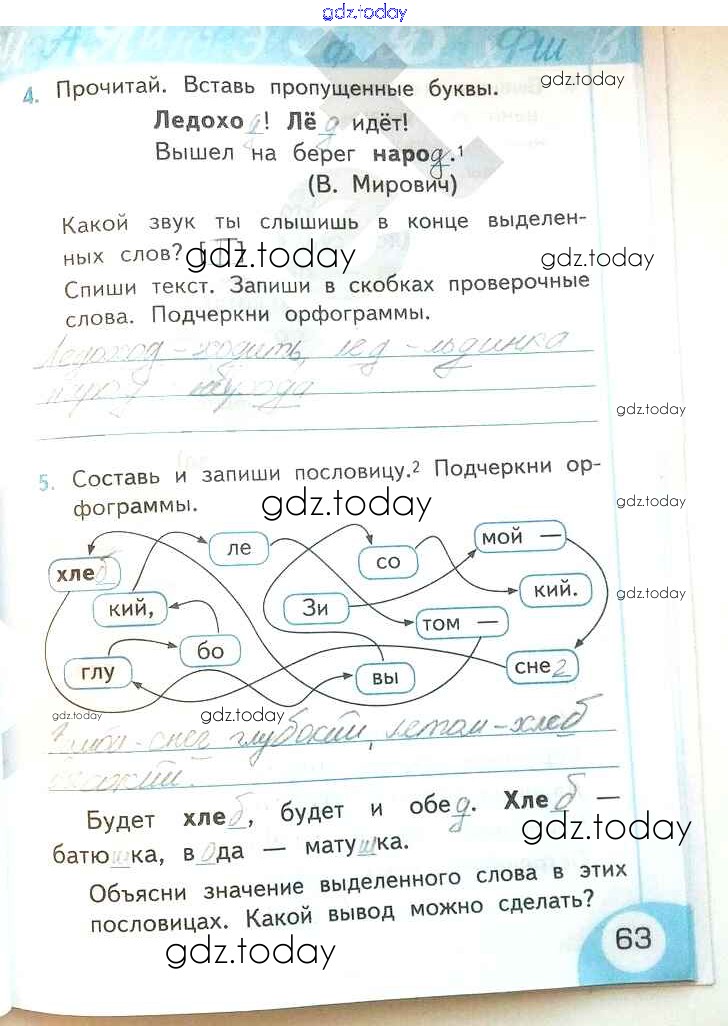 gdz.today
4. Прочитай. Вставь пропущенные буквы.
gdz.today
Ледоход! Лёд идёт!
Вышел на берег народ.¹
(В. Мирович)
Какой звук ты слышишь в конце выделен-
ных слов? [Т]
gdz.today
gdz.today
Спиши текст. Запиши в скобках проверочные
слова. Подчеркни орфограммы.
Ледоход - ходить, лед - льдинка
gdz.today
5. Составь и запиши пословицу.² Подчеркни ор-
фограммы.
gdz.today
gdz.today
ле
со
мой —
хлеб
кий,
Зи
том —
кий.
gdz.today
глу
бо
вы
снег
gdz.today
gdz.today
снег глубокий, летом - хлеб
высокий.
Будет хлеб, будет и обед. Хлеб —
батюшка, вода — матушка.
gdz.today
Объясни значение выделенного слова в этих
пословицах. Какой вывод можно сделать?
gdz.today
63